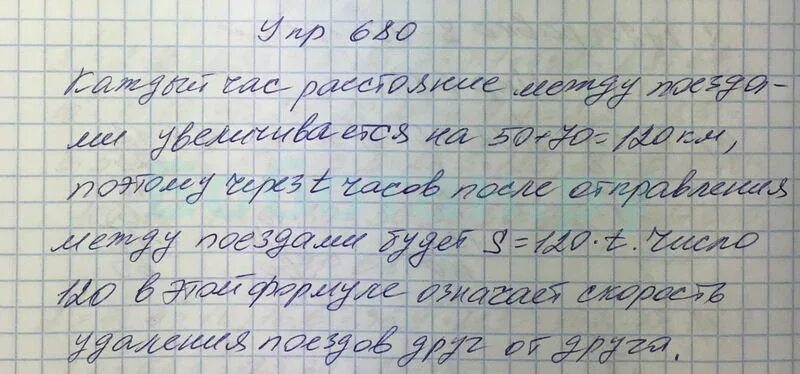 Упр 680
Каждый час расстояние между поезда-
ми увеличивается на 50+70=120 км,
поэтому через t часов после отправления
между поездами будет S=120·t. Число
120 в этой формуле означает скорость
удаления поездов друг от друга.